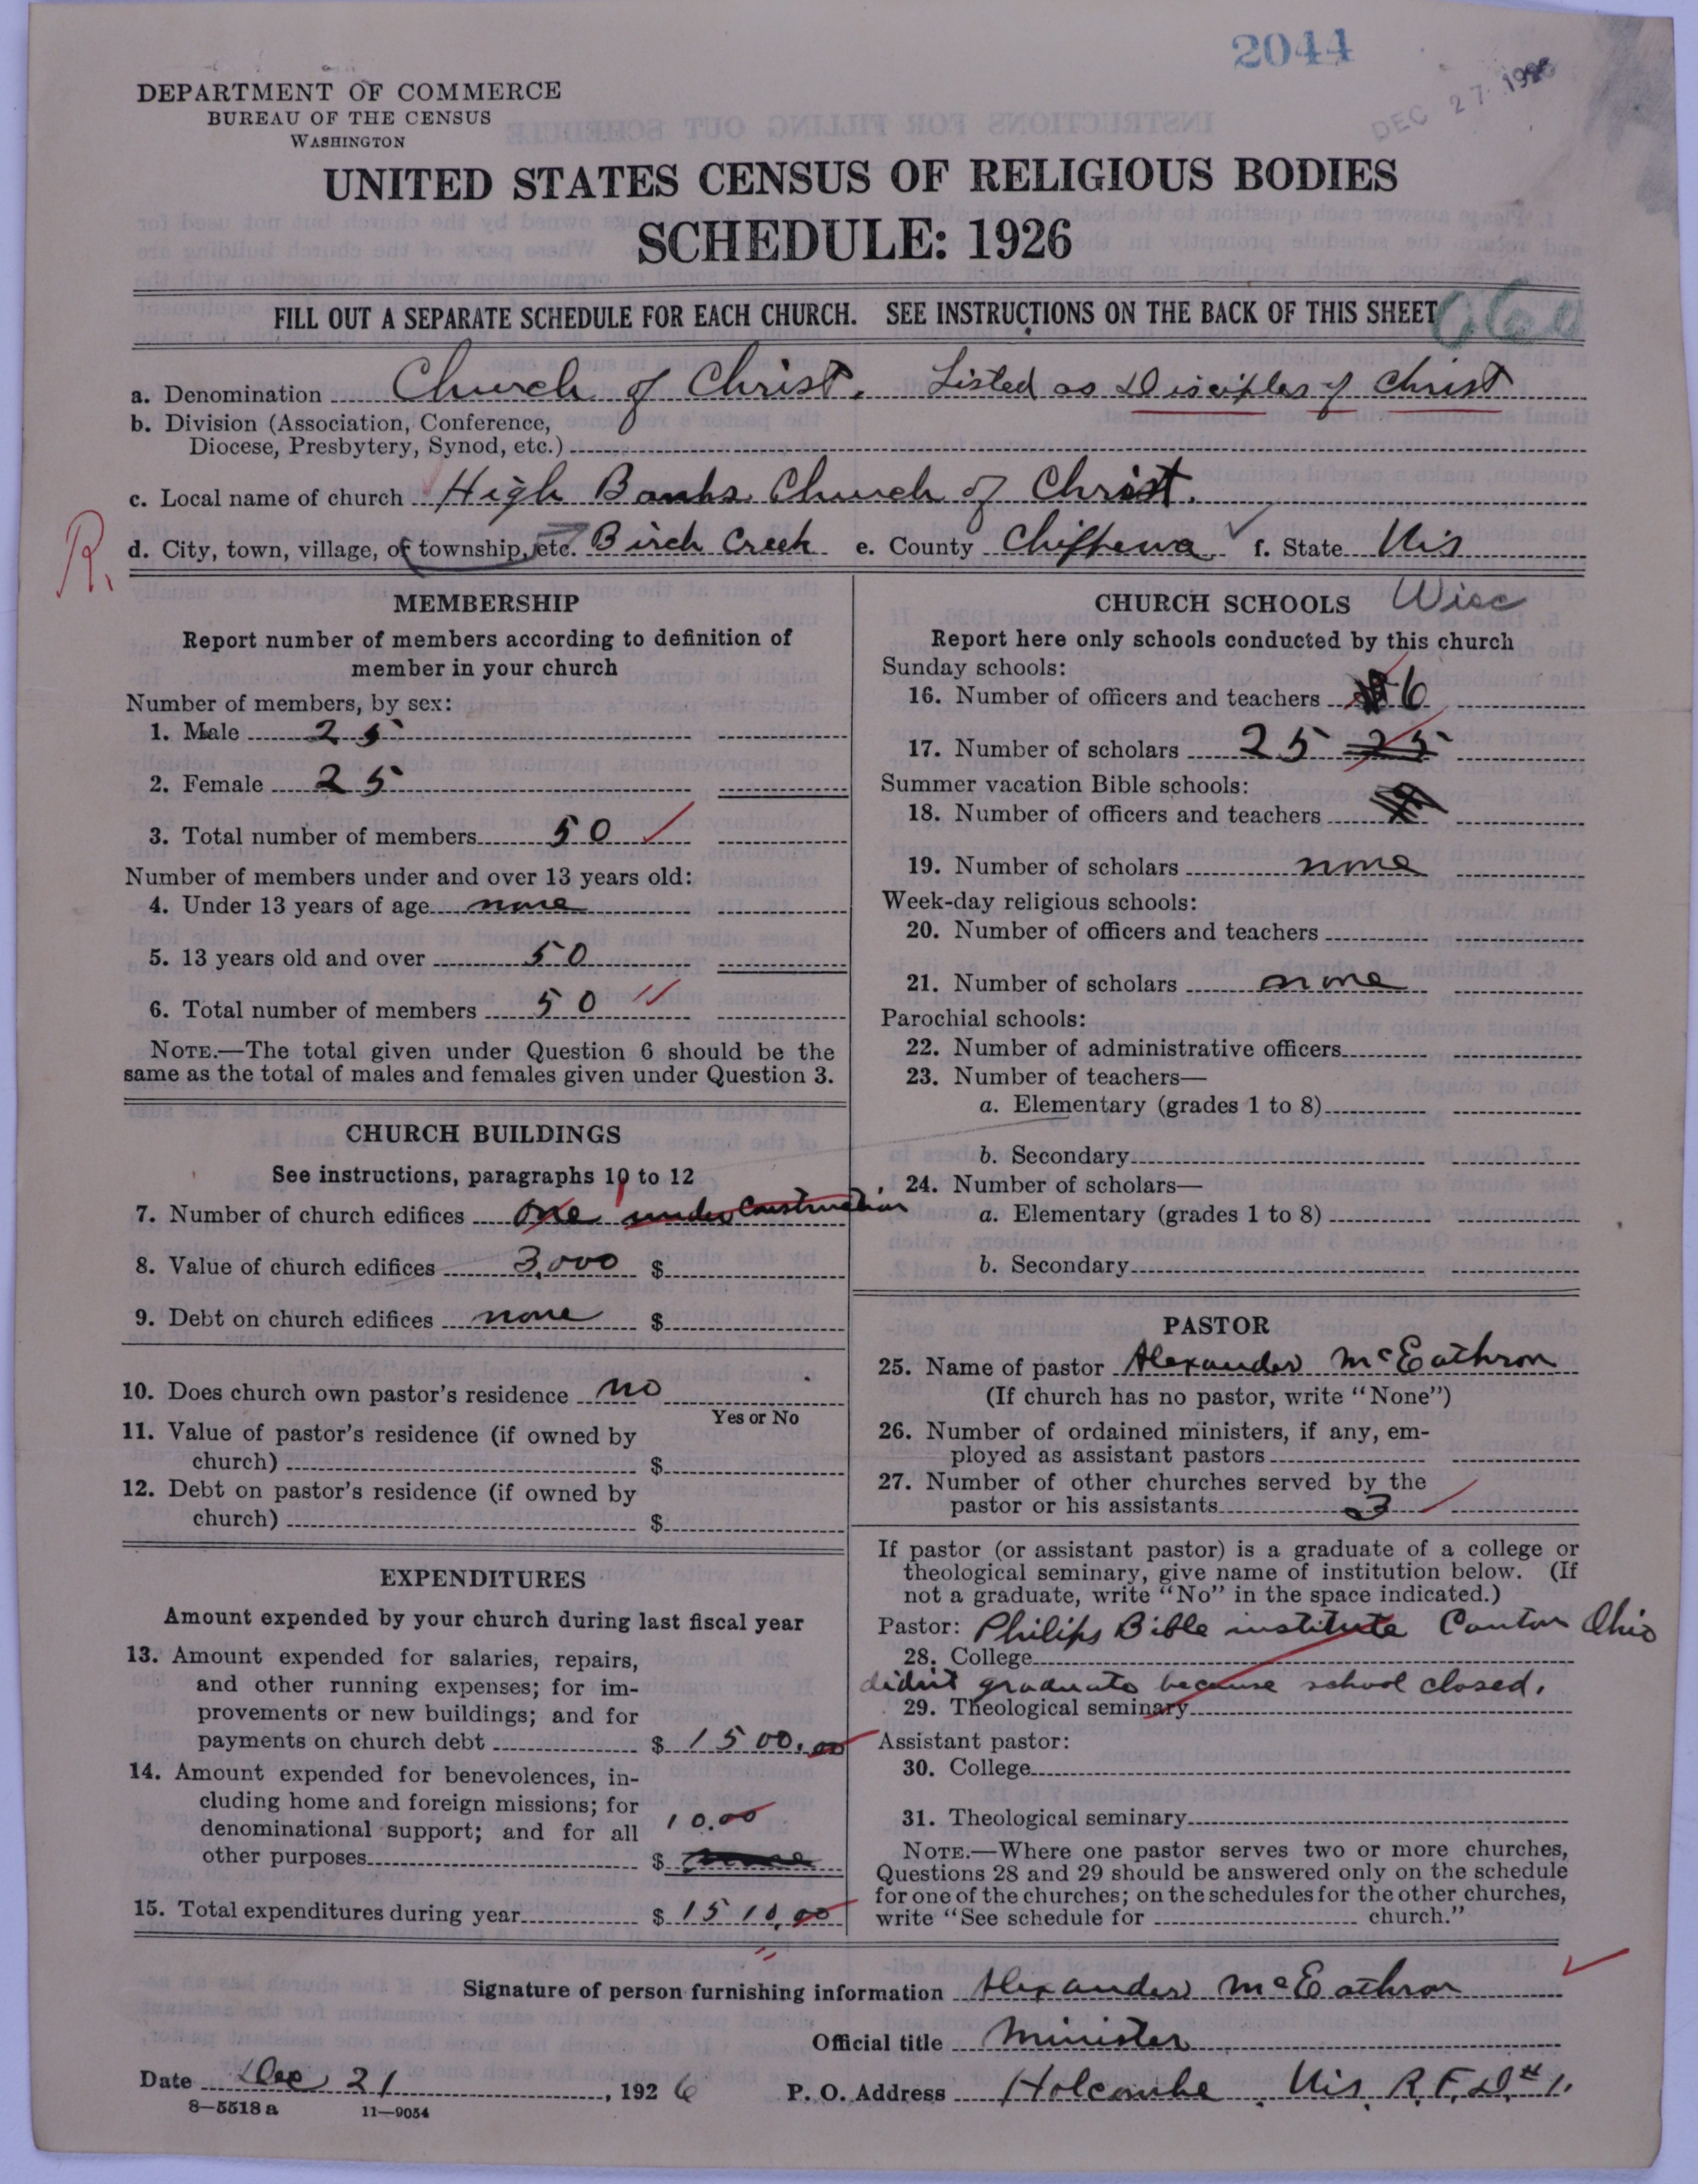 2044
DEC 27 1926
DEPARTMENT OF COMMERCE
BUREAU OF THE CENSUS
WASHINGTON
UNITED STATES CENSUS OF RELIGIOUS BODIES
SCHEDULE: 1926
FILL OUT A SEPARATE SCHEDULE FOR EACH CHURCH. SEE INSTRUCTIONS ON THE BACK OF THIS SHEET
a. Denomination Church of Christ. Listed as Disciples of Christ
b. Division (Association, Conference,
Diocese, Presbytery, Synod, etc.)
c. Local name of church High Banks Church of Christ.
R. d. City, town, village, or township, etc. Birch Creek e. County Chippewa f. State Wis
Wisc
MEMBERSHIP
Report number of members according to definition of
member in your church
Number of members, by sex:
1. Male 25
2. Female 25
3. Total number of members 50
Number of members under and over 13 years old:
4. Under 13 years of age none
5. 13 years old and over 50
6. Total number of members 50
NOTE.—The total given under Question 6 should be the
same as the total of males and females given under Question 3.
CHURCH BUILDINGS
See instructions, paragraphs 10 to 12
7. Number of church edifices one under Construction
8. Value of church edifices 3,000 $
9. Debt on church edifices none $
10. Does church own pastor's residence no
Yes or No
11. Value of pastor's residence (if owned by
church) $
12. Debt on pastor's residence (if owned by
church) $
EXPENDITURES
Amount expended by your church during last fiscal year
13. Amount expended for salaries, repairs,
and other running expenses; for im-
provements or new buildings; and for
payments on church debt $ 1500.00
14. Amount expended for benevolences, in-
cluding home and foreign missions; for
denominational support; and for all 10.00
other purposes $
15. Total expenditures during year $ 1510.00
CHURCH SCHOOLS
Report here only schools conducted by this church
Sunday schools:
16. Number of officers and teachers 6
17. Number of scholars 25 25
Summer vacation Bible schools:
18. Number of officers and teachers
19. Number of scholars none
Week-day religious schools:
20. Number of officers and teachers
21. Number of scholars none
Parochial schools:
22. Number of administrative officers
23. Number of teachers—
a. Elementary (grades 1 to 8)
b. Secondary
24. Number of scholars—
a. Elementary (grades 1 to 8)
b. Secondary
PASTOR
25. Name of pastor Alexander McEathron
(If church has no pastor, write "None")
26. Number of ordained ministers, if any, em-
ployed as assistant pastors
27. Number of other churches served by the
pastor or his assistants 3
If pastor (or assistant pastor) is a graduate of a college or
theological seminary, give name of institution below. (If
not a graduate, write "No" in the space indicated.)
Pastor: Philips Bible institute Canton Ohio
28. College
didnt graduate because school closed.
29. Theological seminary
Assistant pastor:
30. College
31. Theological seminary
NOTE.—Where one pastor serves two or more churches,
Questions 28 and 29 should be answered only on the schedule
for one of the churches; on the schedules for the other churches,
write "See schedule for church."
Signature of person furnishing information Alexander McEathron
Official title Minister
Date Dec 21, 1926 P. O. Address Holcombe Wis R.F.D. # 1.
8—5518 a 11—9054